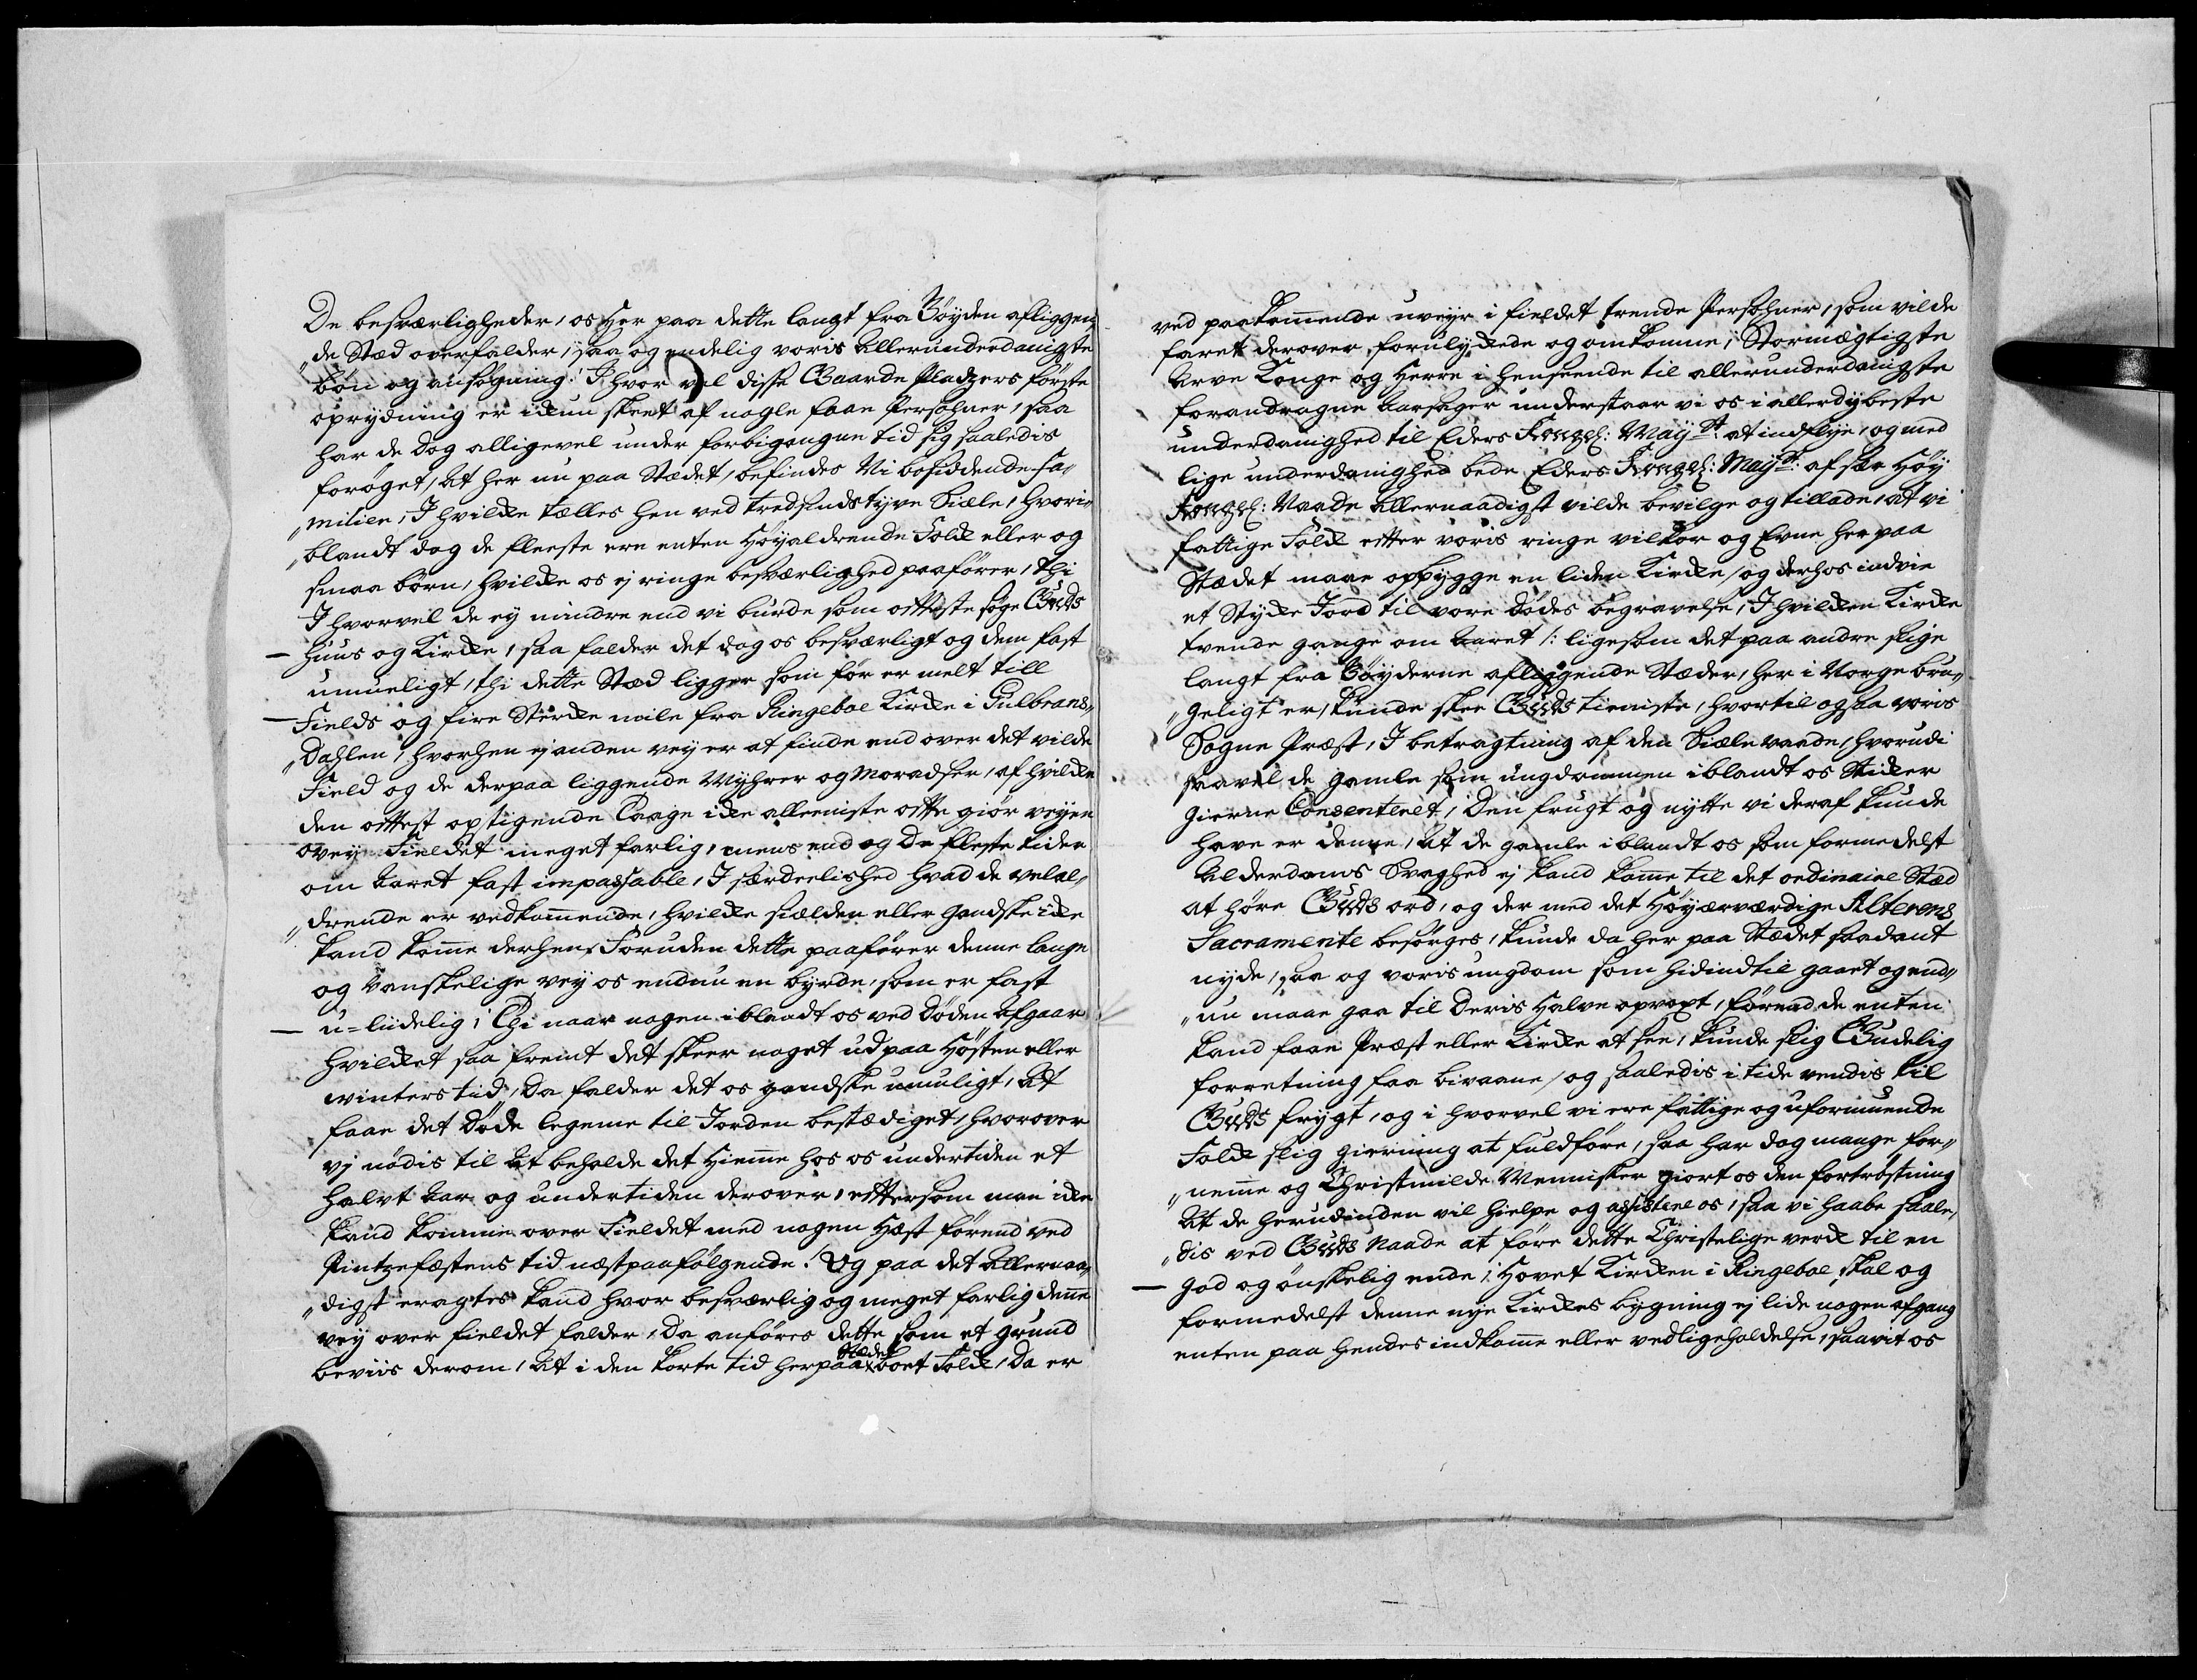 De besværligheder, os her paa dette langt fra Bøyden afliggen,,
,,de Stæd overfalder, saa og endelig voris Allerunderdanigste
bøn og ansøgning: I hvor vel disse Gaarde Pladzers første
oprydning er ickun skeet af nogle faae Persohner, saa
har de dog alligevel under forbigangne tid sig saaledis
forøget, At her nu paa Stædet, befindes Ni bosiddende Fa,,
,,milier, I hvilcke tælles hen ved tredsindstyve Siæle, hvori,,
,,blandt dog de fleeste ere enten Høyaldrende Folck eller og
smaa børn, hvilcke os ej ringe besværlighed paafører, thi
I hvorvel de ey mindre end vi burde som offteste søge Guds
huus og Kircke, saa falder det dog os besværligt og dem fast
umueligt, thi dette Stæd ligger som før er melt till
Fields og fire Stercke miile fra Ringeboe Kircke i Gulbrans,,
,,Dahlen, hvorhen ej anden vey er at finde end over det vilde
Field og de derpaa liggende Myhrer og Moradser, af hvilcke
den offtest opstigende Taage icke alleeniste offte giør veyen
over Fieldet meget farlig, mens end og De fleste tider
om Aaret fast impassable, I særdeelished hvad de velal,,
,,drende er vedkommende, hvilcke siælden eller gandske icke
kand komme derhen, Foruden dette paafører denne lange
og vanskelige vey os endnu en byrde, som er fast
u=liidelig; Thi naar nogen iblandt os ved Døden Afgaar
hvilcket saa fremt det skeer noget ud paa Høsten eller
winters tid, Da falder det os gandske umuligt, At
faae det Døde legeme til Jorden bestædiget, hvorover
vj nødis til At beholde det hiemme hos os undertiden et
halvt Aar og undertiden derover, efftersom man icke
kand komme over Fieldet med nogen Hæst førend ved
Pintzefæstens tid næstpaafølgende. Og paa det Allernaa,,
,,digst eragtes kand hvor besværlig og meget farlig denne
vey over fieldet falder, Da anføres dette som et grund
beviis derom, At i den korte tid her paa Stædet boet Folck, Da er
ved paakommende uveyr i fieldet trende Persohner, som vilde
faret derover forulyckede og omkomne, Stormægtigste
Arve Konge og Herre i henseende til allerunderdanigste
forandragne Aarsager understaar vi os i allerdybeste
underdanighed til Eders Kongel: May.st: at indflye, og med
lige underdanighed bede Eders Kongel: May.st: af sær Høy
Kongel: Naade Allernaadigst vilde bevilge og tillade, at vi
fattige Folck efter voris ringe vilkor og Evne her paa
Stædet maae opbygge en liden Kircke, og derhos indvie
et Stycke Jord til vore Dødes begravelse, I hvilcken Kircke
trende gange om Aaret /: ligesom det paa andre slige
langt fra Bøyderne afliggende Stæder, her i Norge brue,,
,,geligt er, kunde skee Guds tieniste, hvortil ogsaa voris
Sogne Præst, I betragtning af den Siæle vaade, hvorudi
saavel de gamle som ungdommen iblandt os Sticker
gierne Consenteret, Den frugt og nytte vi deraf kunde
have er denne, At de gamle iblandt os som formedelst
Alderdoms Svaghed ej kand komme til det ordinaire Stæd
at høre Guds ord, og der med det Høyærværdige Alterens
Sacramente besørges, kunde da her paa Stædet saadant
nyde, saa og voris ungdom som hidindtil gaaet og end,,
,,nu maae gaa til Deris Halve opvoxt, førend de enten
kand faae Præst eller Kircke at see, kunde slig Gudelig
forretning faa bivaane, og saaledis i tide vendis til
Guds frygt, og i hvorvel vi ere fattige og uformuende
Folck slig gierning at fuldføre, saa har dog mange for,,
,,nemme og Christmilde Mennisker giort os den fortrøstning
At de herudinden vil hielpe og assistere os, saa vi haabe saale,,
,,dis ved Guds Naade at føre dette Christelige verck til en
god og ønskelig ende; Hovet Kircken i Ringeboe skal og
formedelst denne nye Kirckes bygning ej lide nogen afgang
enten paa hendes indkomme eller vedligeholdelse, saavit os